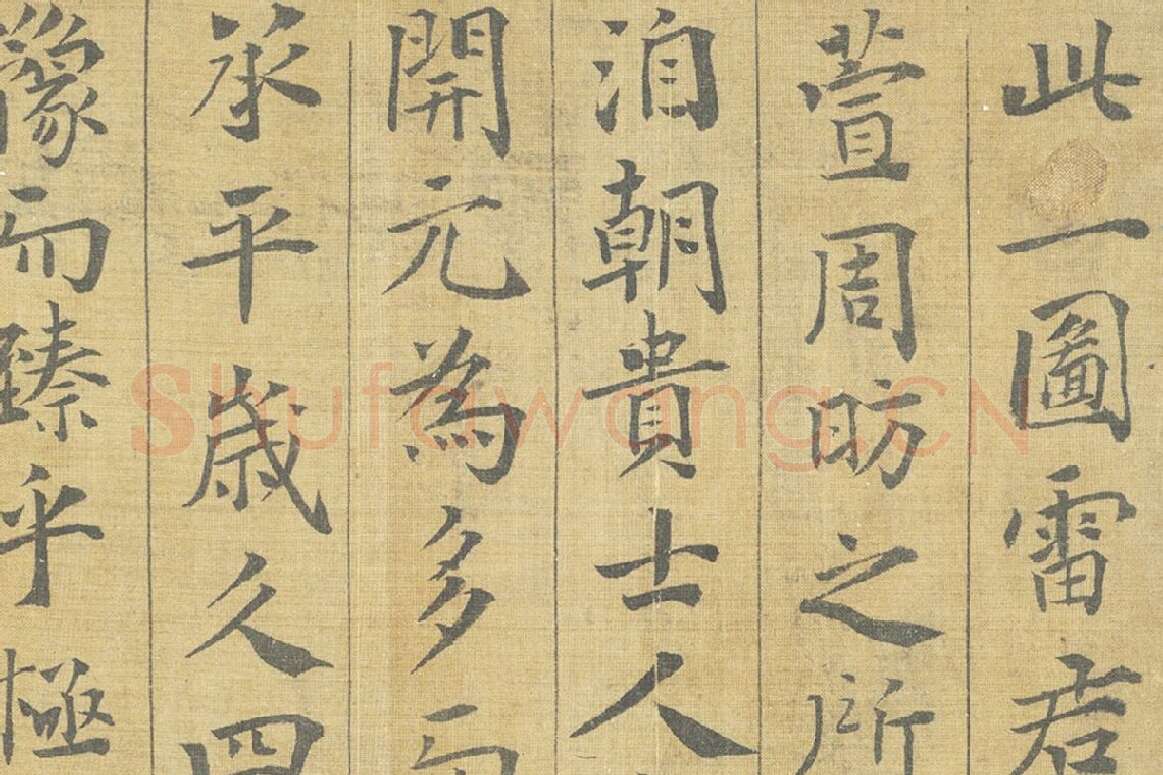 此一圖雷君
萱周昉之所
洎朝貴士人
開元為多
承平歲久四
豫而臻乎極
Shufawang.CN